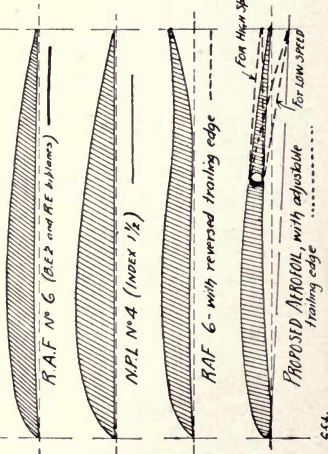 R.A.F Nº 6 (B.E2 and R.E biplanes)
N.P.L Nº 4 (INDEX 1½)
RAF 6 - with reversed trailing edge
FOR HIGH SP
FOR LOW SPEED
PROPOSED AEROFOIL, with adjustable
trailing edge